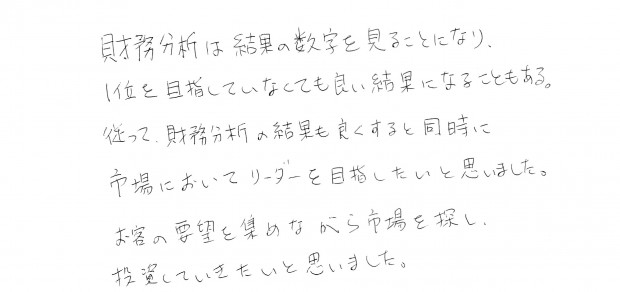 財務分析は結果の数字を見ることになり、
1位を目指していなくても良い結果になることもある。
従って、財務分析の結果も良くすると同時に
市場においてリーダーを目指したいと思いました。
お客の要望を集めながら市場を探し、
投資していきたいと思いました。